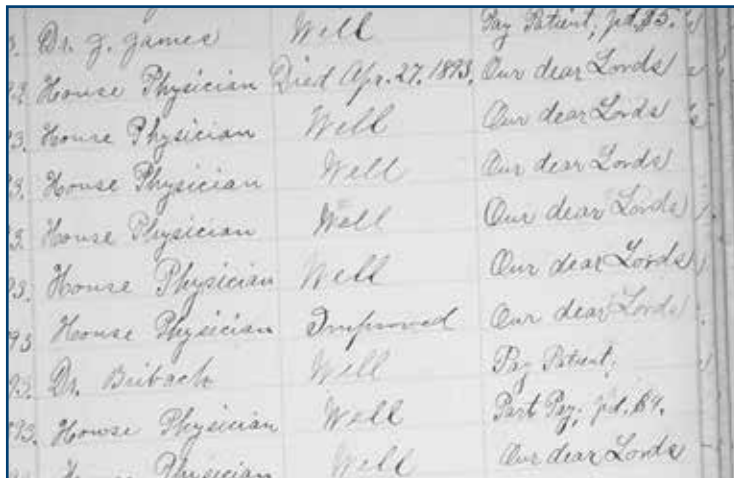 3. Dr. G. James Well Pay Patient, pd. $5.
92. House Physician Died Apr. 27. 1893. Our dear Lords
93. House Physician Well Our dear Lords
93. House Physician Well Our dear Lords
93. House Physician Well Our dear Lords
93. House Physician Well Our dear Lords
93. House Physician Improved Our dear Lords
93. Dr. Bribach Well Pay Patient,
93. House Physician Well Part Pay, pd. $4.
House Physician Well Our dear Lords